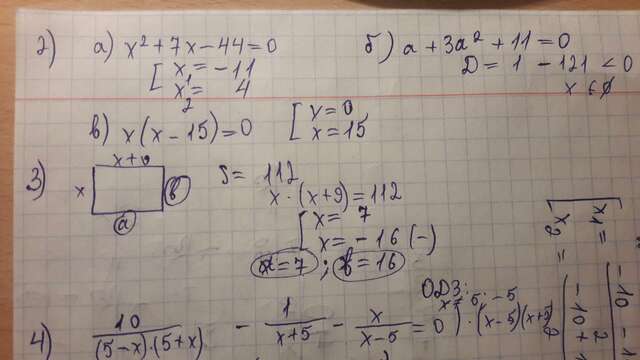 2) а) x² + 7x - 44 = 0
[ x₁ = -11
x₂ = 4
б) a + 3a² + 11 = 0
D = 1 - 121 < 0
x ∈ ∅
в) x(x - 15) = 0
[ x = 0
x = 15
3) x
x + 9
a
b
S = 112
x · (x + 9) = 112
[ x = 7
x = -16 (-)
a = 7 ; b = 16
4) 10 / (5-x)·(5+x) - 1 / x+5 - x / x-5 = 0 ) · (x-5)(x+5)
ОДЗ:
x = 5; -5
x₁ =
x₂ =
-10
2
-10 +